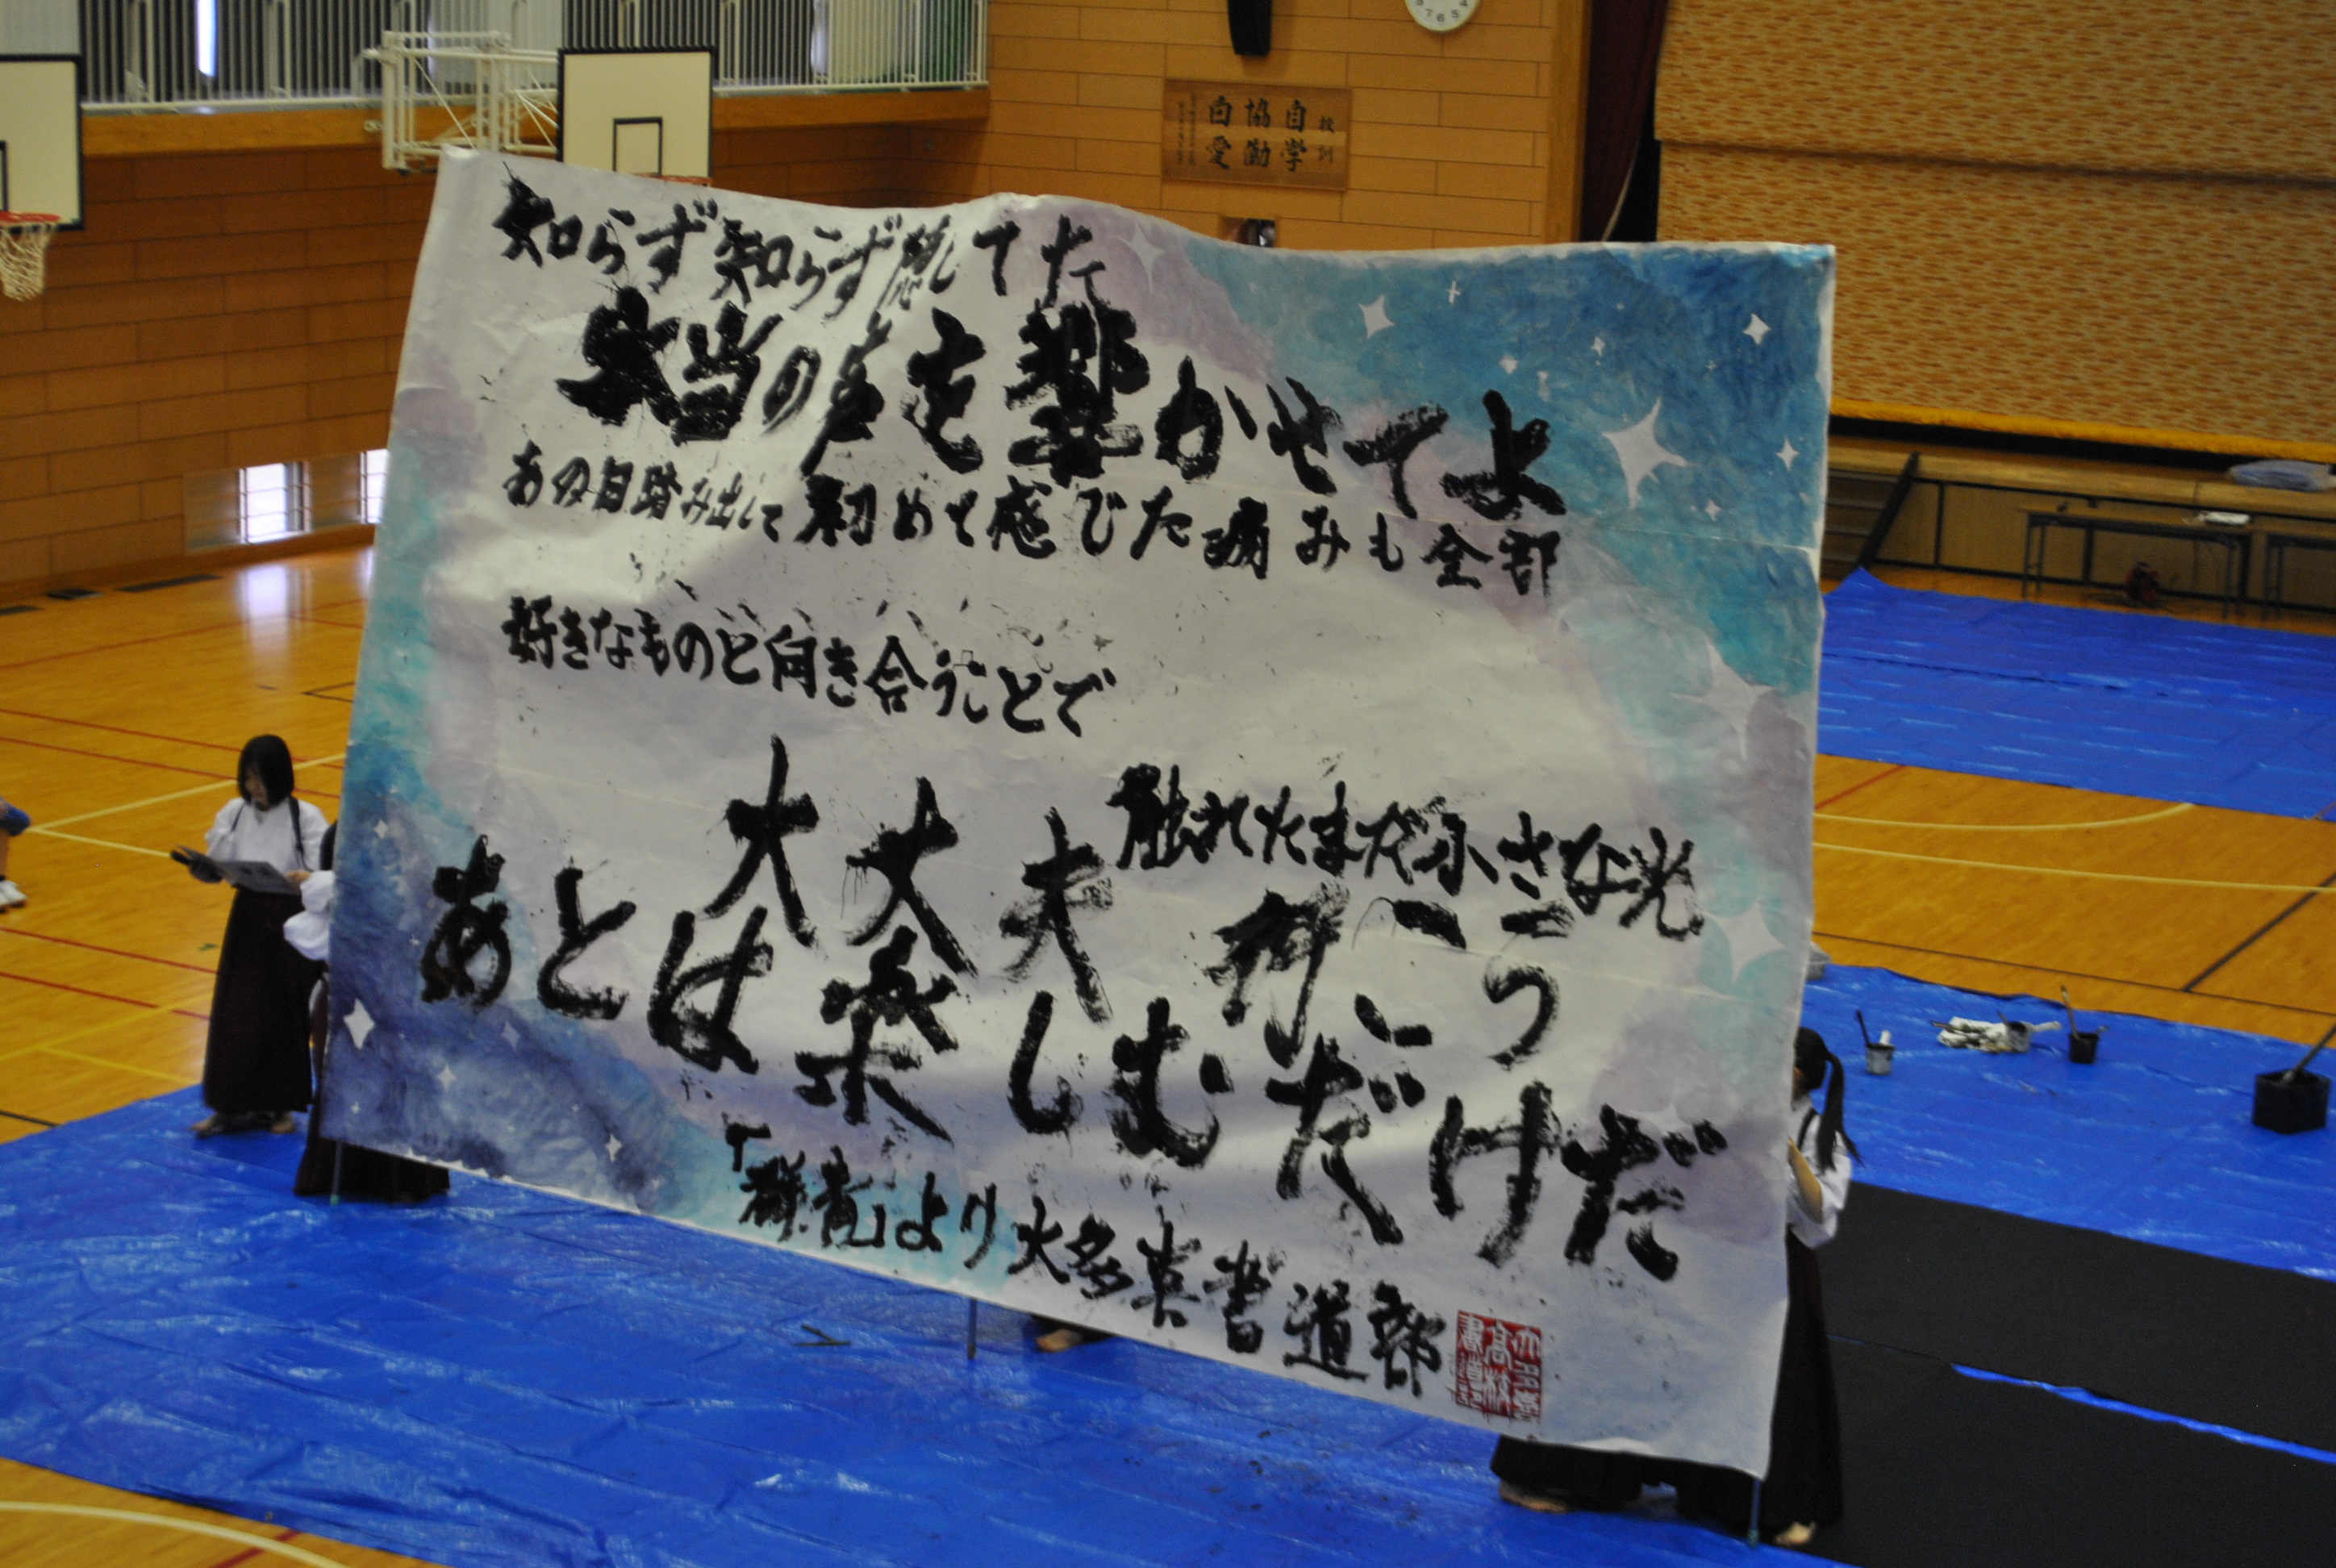 校訓
自学
協働
自愛
知らず知らず隠してた
本当の声を響かせてよ
あの日踏み出して初めて感じた痛みも全部
好きなものと向き合うことで
触れたまだ小さな光
大丈夫行こう
あとは楽しむだけだ
「群青」より大多喜書道部
大多喜
高校
書道部